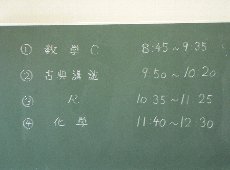 ① 数学C 8:45~9:35
② 古典講読 9:50~10:20
③ R 10:35~11:25
④ 化学 11:40~12:30